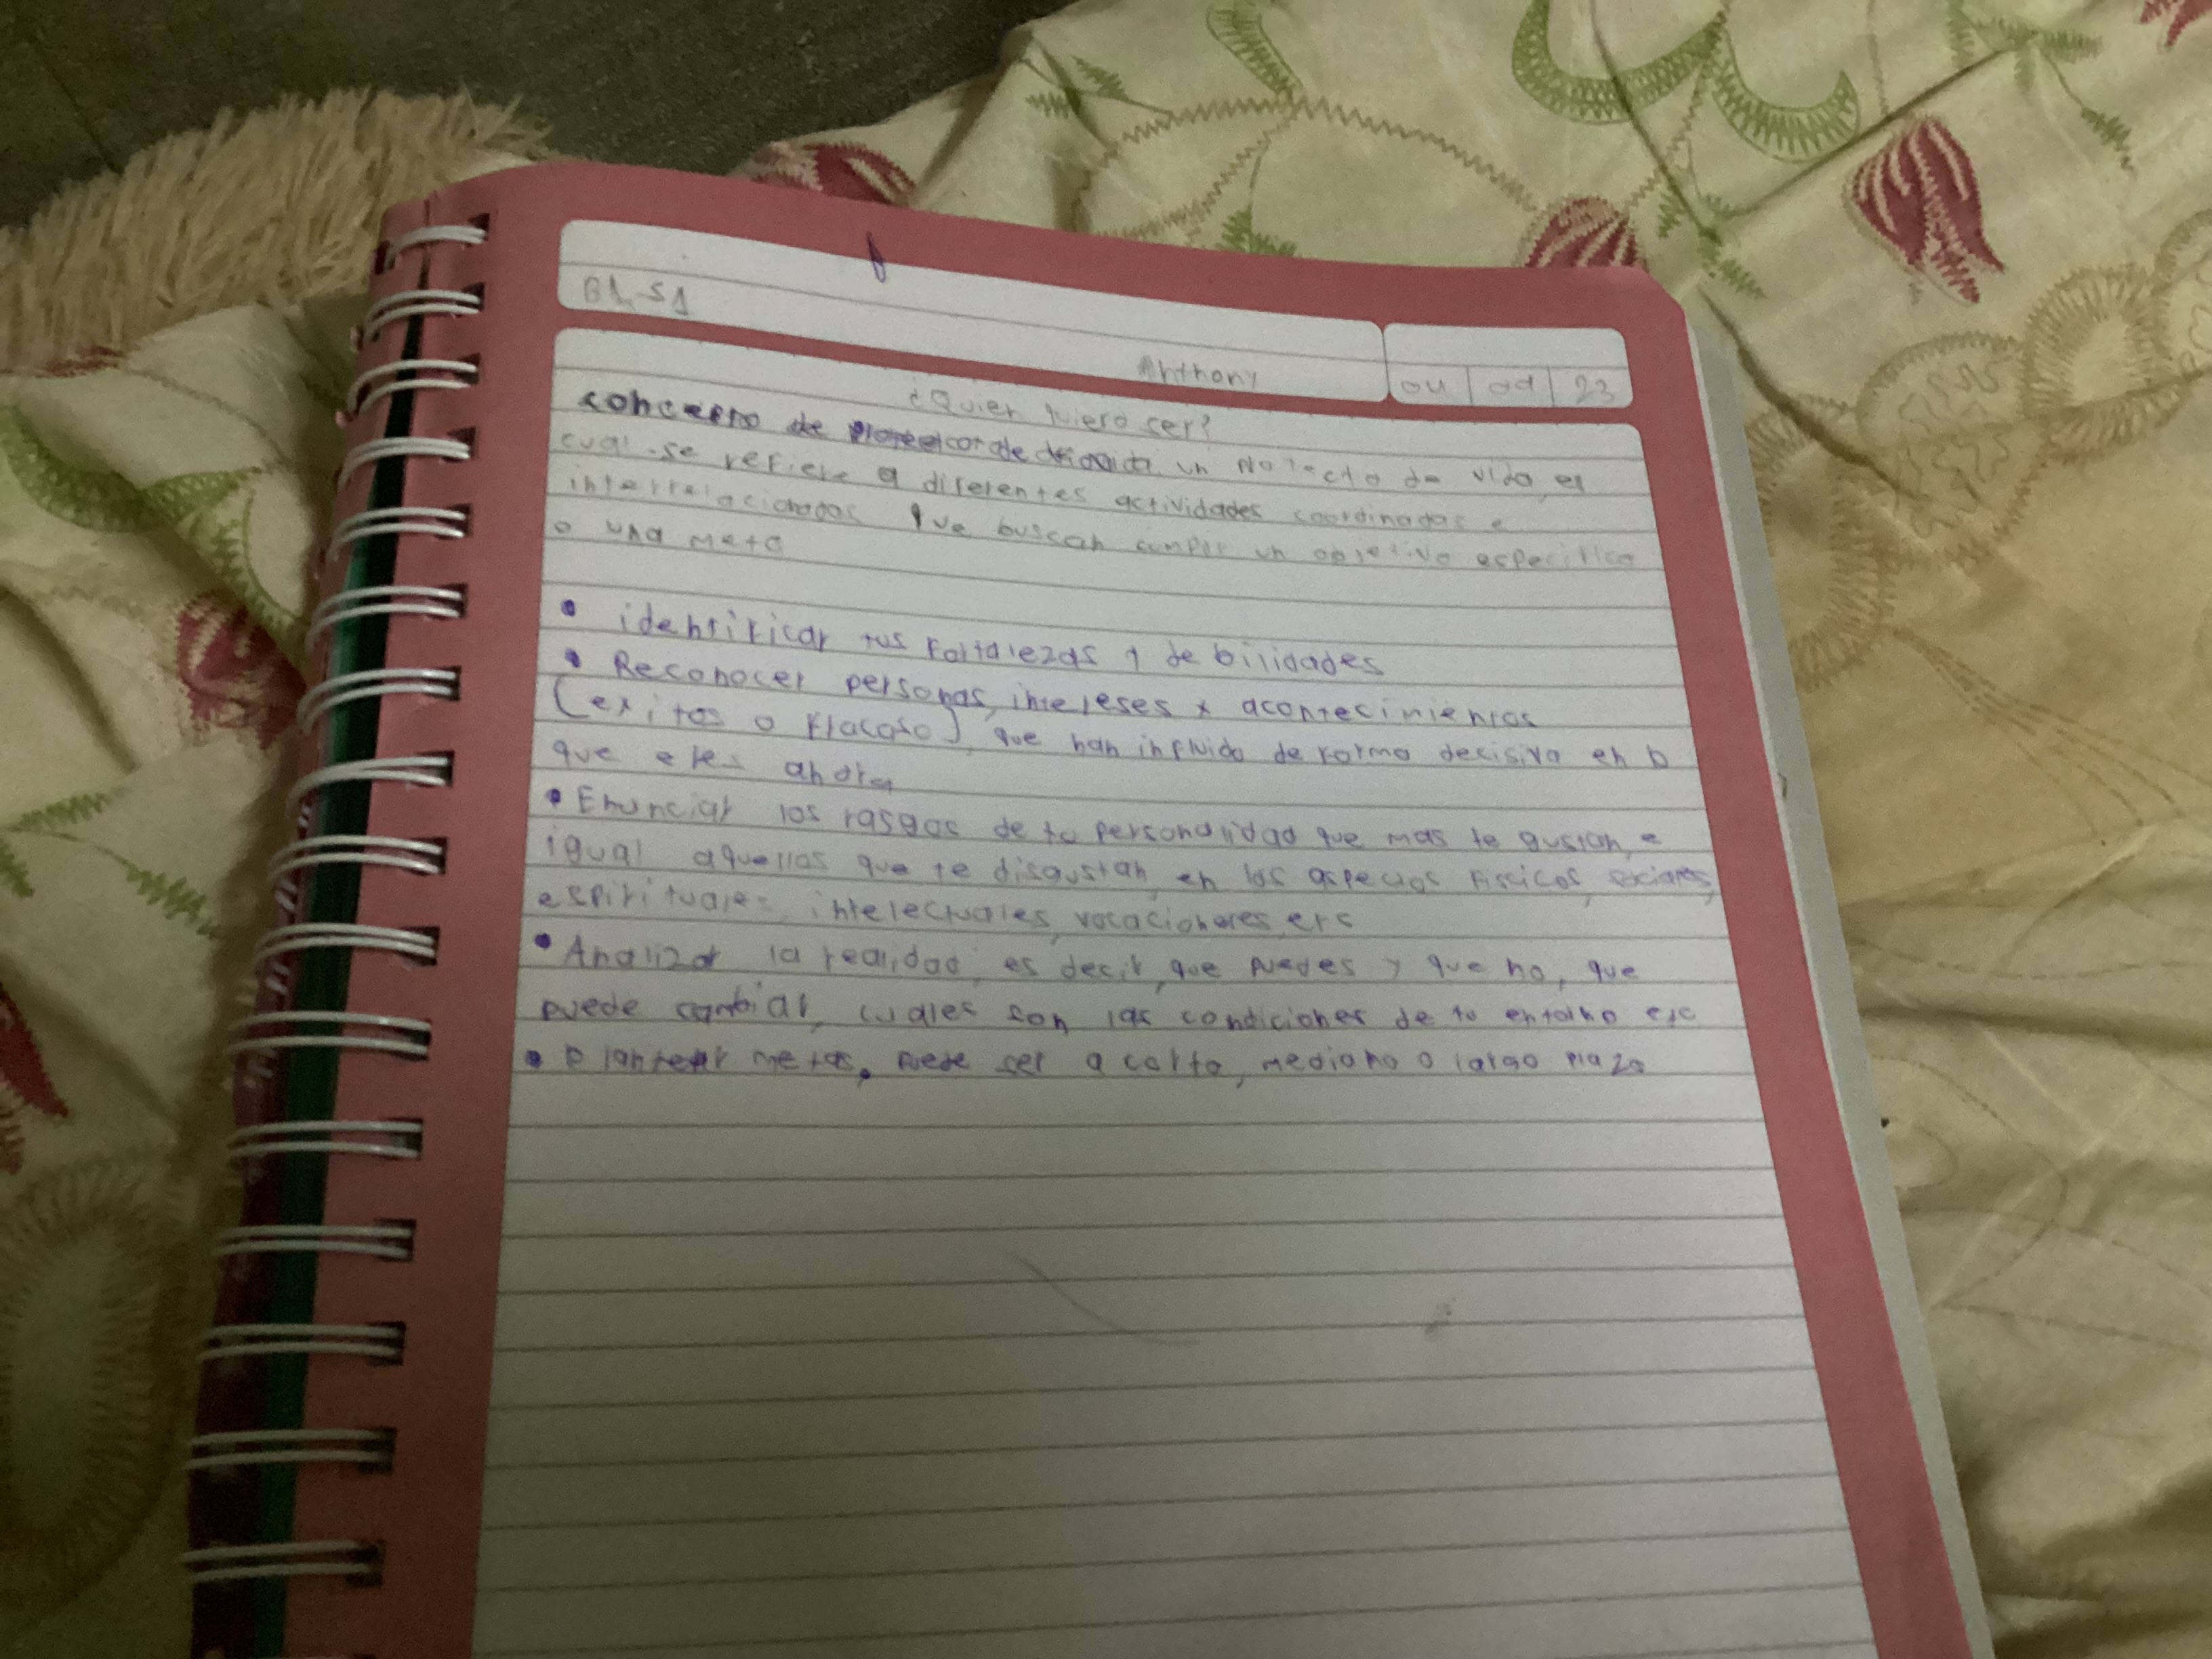 B1,S1
Anthony
04 | 09 | 23
¿Quier quiero ser?
concepto de proyecto de vida un proyecto de vida, el
cual se refiere a diferentes actividades coordinadas e
interrelacionadas que buscan cumplir un objetivo especifico
o una meta
• identificar tus Fortalezas y debilidades
• Reconocer personas, intereses x acontecimientos
(exitos o Fracaso), que han influido de forma decisiva en lo
que eres ahora
• Enunciar los rasgos de tu personalidad que mas te gustan, e
igual aquellos que te disgustan, en los aspectos Fissicos, sociales,
espirituales, intelectuales, vocacionales, etc
• Analizar la realidad, es decir, que puedes y que no, que
puede cambiar, cuales son las condiciones de tu entorno etc
• Plantear metas, puede ser a corto, mediano o largo plazo